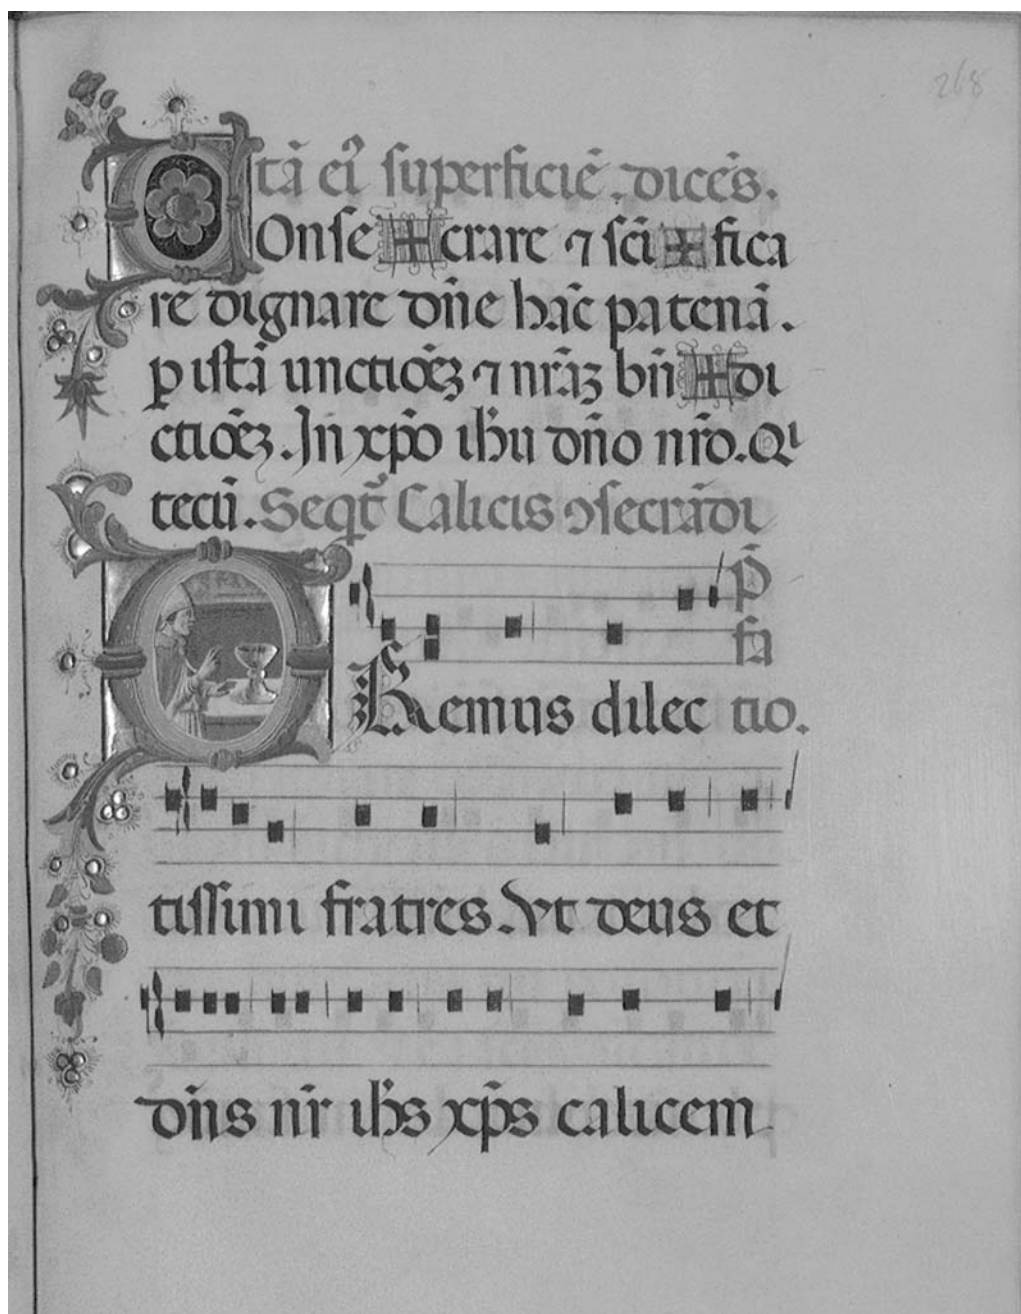 268
tā eiꝰ superficiē. dicēs.
COnse ✠ crare ⁊ scī ✠ fica
re dignare dn̄e hāc patenā.
p istā unctiōeꝫ ⁊ nr̄āꝫ bn̄ ✠ di
ctiōeꝫ. In xp̄o ihū dn̄o nr̄o. Qi
tecū. Seqt̄ Calicis ↄsecrādi
p̄
fa
ORemus dilec tio.
tissimi fratres. Vt deus et
dn̄s nr̄ ihs̄ xp̄s calicem